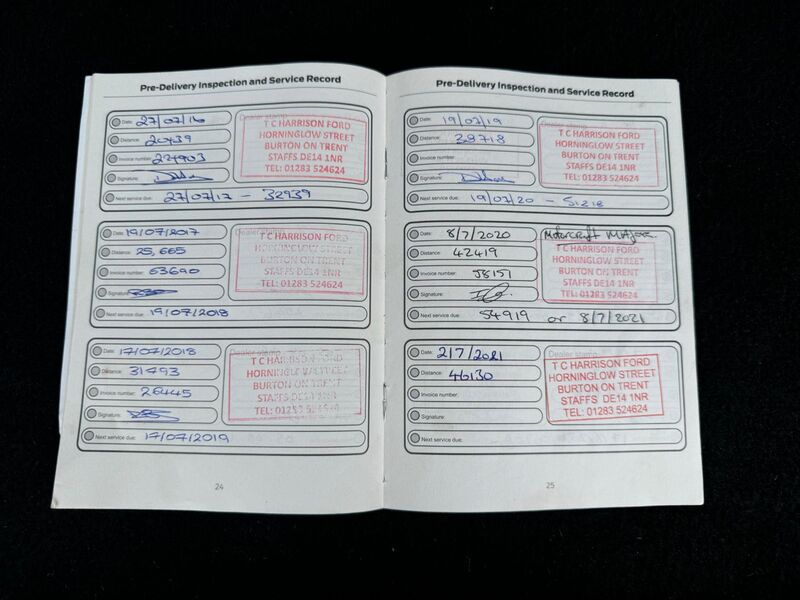 Pre-Delivery Inspection and Service Record
Date: 27/07/16
Dealer stamp
Distance: 20939
Invoice number: 227903
Signature:
Next service due: 27/07/17 - 32939
T C HARRISON FORD
HORNINGLOW STREET
BURTON ON TRENT
STAFFS DE14 1NR
TEL: 01283 524624
Date: 19/07/2017
Dealer stamp
Distance: 25,665
Invoice number: 63690
Signature:
Next service due: 19/07/2018
T C HARRISON FORD
HORNINGLOW STREET
BURTON ON TRENT
STAFFS DE14 1NR
TEL: 01283 524624
Date: 17/07/2018
Dealer stamp
Distance: 31493
Invoice number: 26445
Signature:
Next service due: 17/07/2019
T C HARRISON FORD
HORNINGLOW STREET
BURTON ON TRENT
STAFFS DE14 1NR
TEL: 01283 524624
24
Pre-Delivery Inspection and Service Record
Date: 19/07/19
Dealer stamp
Distance: 39718
Invoice number:
Signature:
Next service due: 19/07/20 - 51218
T C HARRISON FORD
HORNINGLOW STREET
BURTON ON TRENT
STAFFS DE14 1NR
TEL: 01283 524624
Date: 8/7/2020
Motorcraft Major
Distance: 42419
Invoice number: J8151
Signature:
Next service due: 54919 or 8/7/2021
T C HARRISON FORD
HORNINGLOW STREET
BURTON ON TRENT
STAFFS DE14 1NR
TEL: 01283 524624
Date: 2/7/2021
Dealer stamp
Distance: 46130
Invoice number:
Signature:
Next service due:
T C HARRISON FORD
HORNINGLOW STREET
BURTON ON TRENT
STAFFS DE14 1NR
TEL: 01283 524624
25